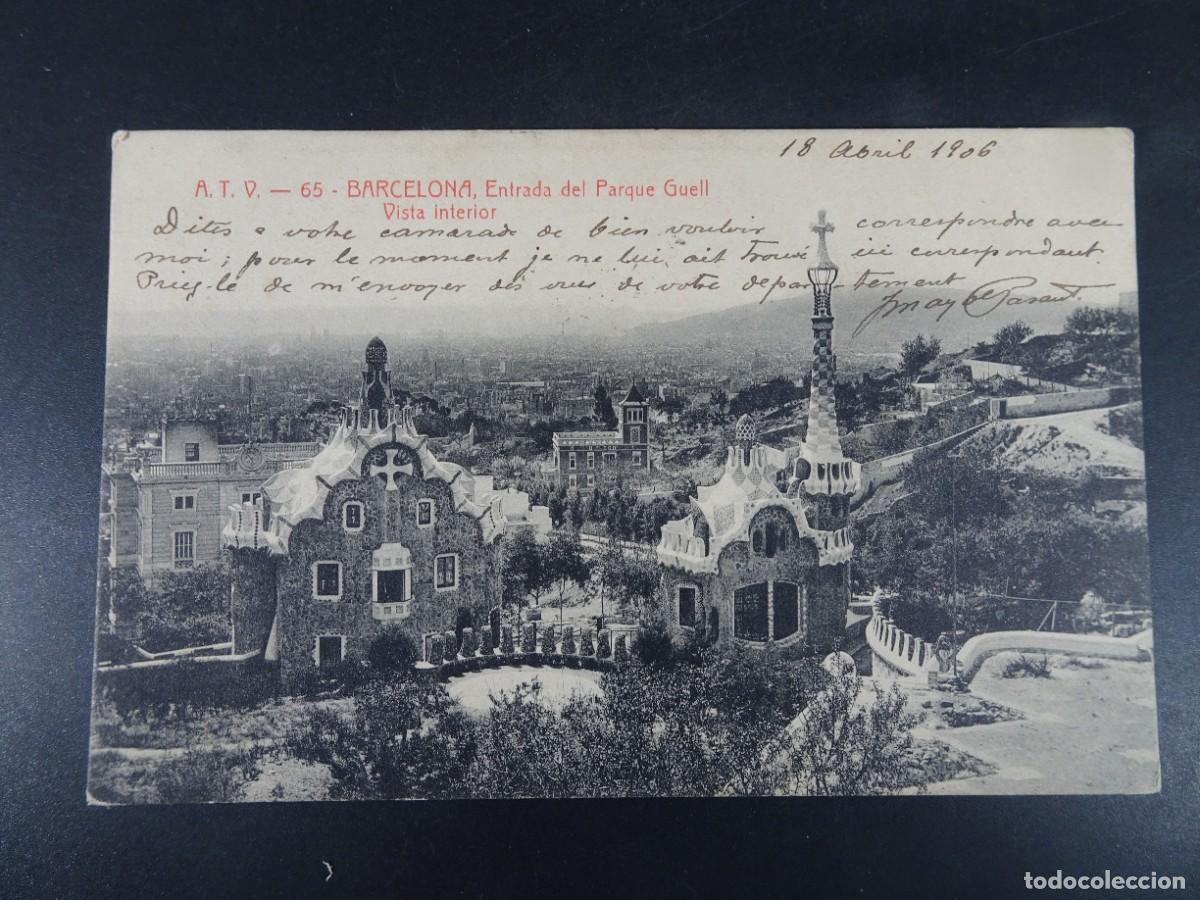 18 Abril 1906
A. T. V. — 65 - BARCELONA, Entrada del Parque Guell
Vista interior
Dites a votre camarade de bien vouloir correspondre avec
moi; pour le moment je ne lui ait trouvé ici correspondant.
Prieg-le de m'envoyer des vues de votre departement
todocoleccion